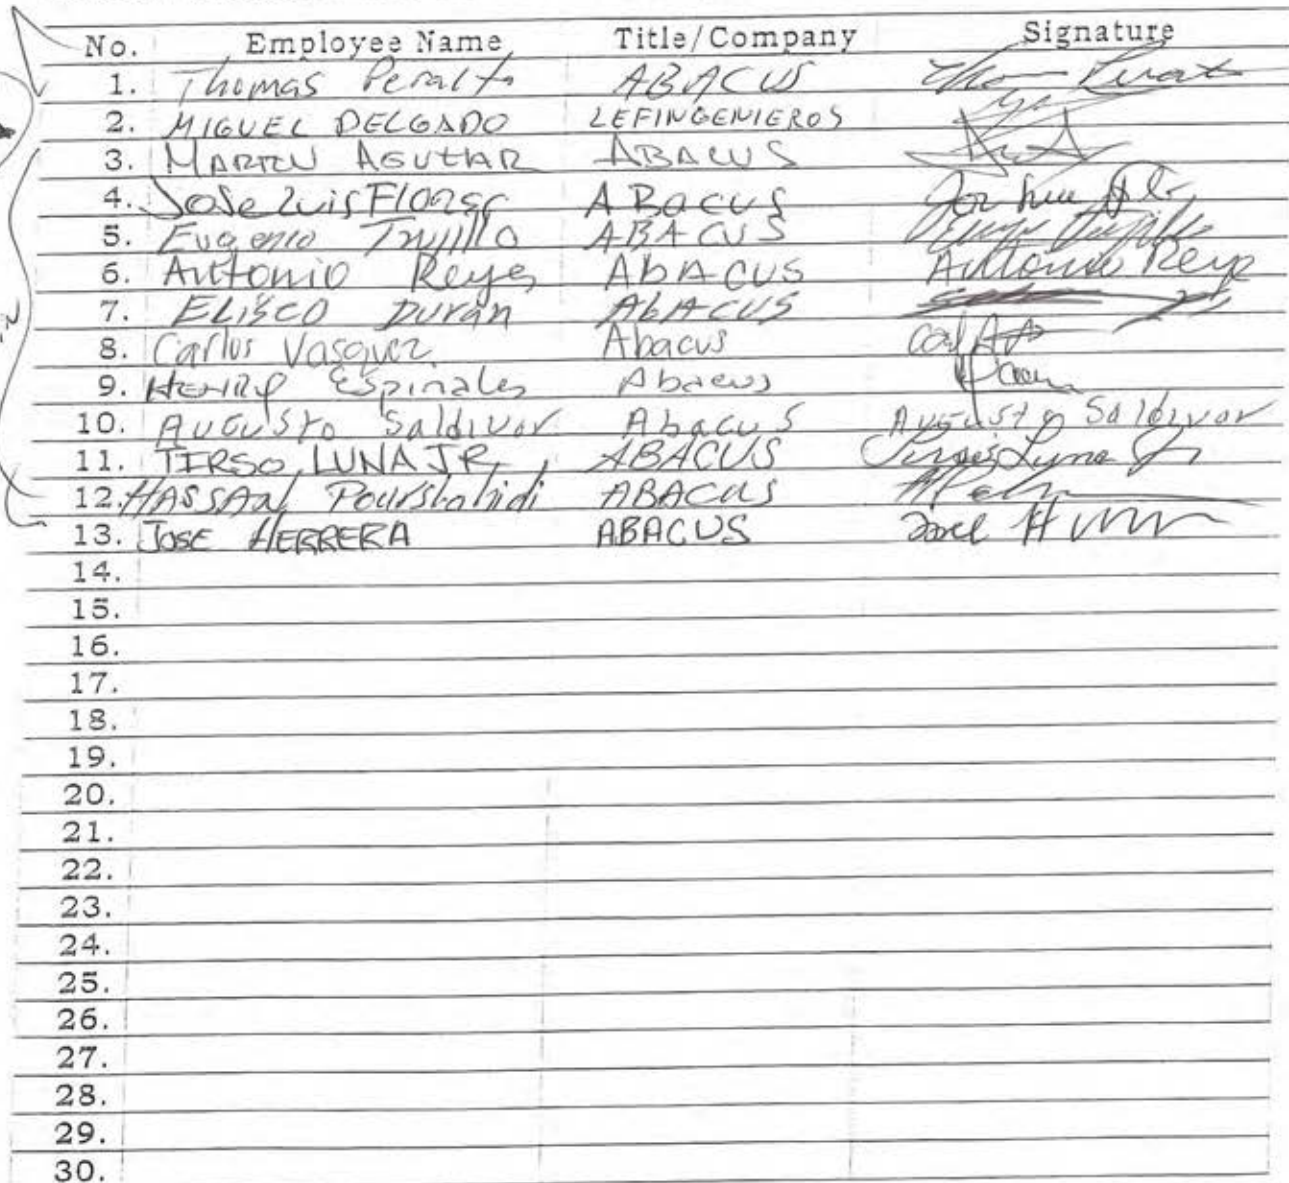 No. Employee Name Title/Company Signature
1. Thomas Peralta ABACUS
2. MIGUEL DELGADO LEFINGENIEROS
3. MARTIN AGUILAR ABACUS
4. Jose Luis Flores ABacus
5. Eugenio Trujillo ABACUS
6. Antonio Reyes AbACUS Antonio Reye
7. ELISEO Duran AbACUS
8. Carlos Vasquez Abacus
9. HENRY Espinales Abacus
10. AUGUSTO Saldivar Abacus Augusto Saldivar
11. TIRSO LUNA JR, ABACUS
12. HASSAN Pourshahidi ABACUS
13. JOSE HERRERA ABACUS
14.
15.
16.
17.
18.
19.
20.
21.
22.
23.
24.
25.
26.
27.
28.
29.
30.